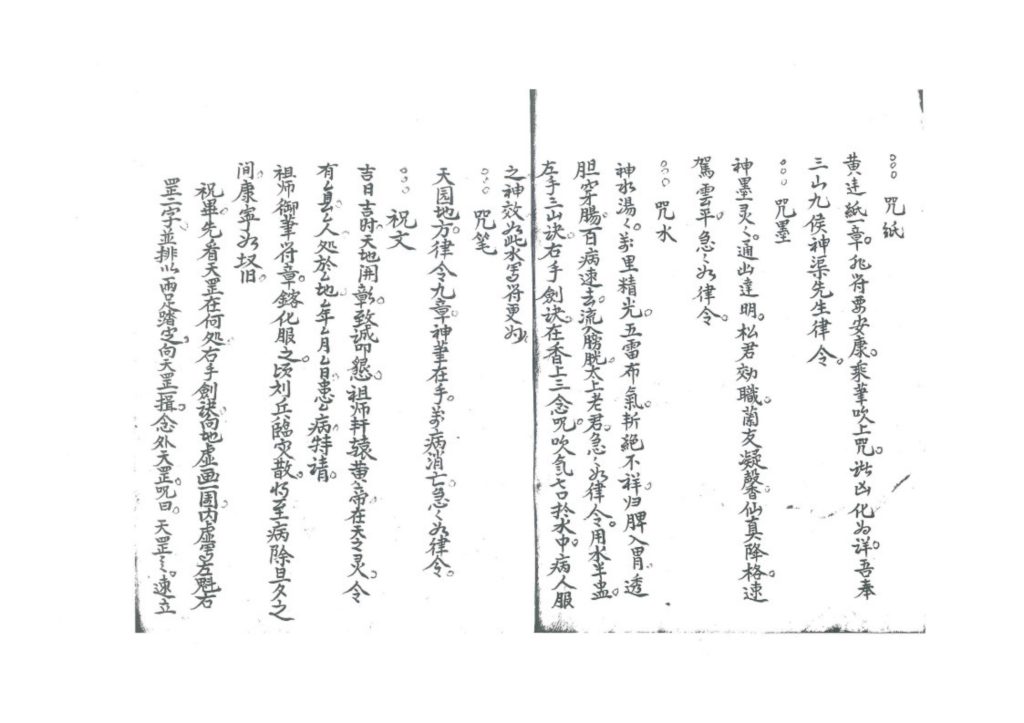 咒纸
黄连紙一章。兆符要安康。乘筆吹上咒。诸凶化为詳。吾奉
三山九侯神渠先生律令。
咒墨
神墨灵々。通幽達明。松君効職。蘭友凝馨。仙真降格。速
駕雲平。急々如律令。
咒水
神水湯々。萬里精光。五雷布氣。斩絶不祥。归脾入胃。透
胆穿腸。百病速去。流入膀胱。太上老君。急々如律令。用水半盅。
左手三山诀。右手劍诀。在香上三念咒。吹气七口於水中。病人服
之神效。如此水写符更妙。
咒笔
天园地方。律令九章。神筆在手。萬病消亡。急々如律令。
祝文
吉日吉时。天地開彰。致诚叩懇。祖师軒辕黄帝在天之灵。令
有厶县厶人。処於厶地。厶年厶月厶日。患厶病。特请。
祖师御筆符章。鎔化服之。顷刻兵臨灾散。将至病除。旦夕之
间。康寧如故旧。
祝畢。先看天罡在何処。右手劍訣。向地虚画一園。内虚写左魁右
罡二字。並排。以两足踏定。向天罡一揖。念外天罡咒曰。天罡々々。速立